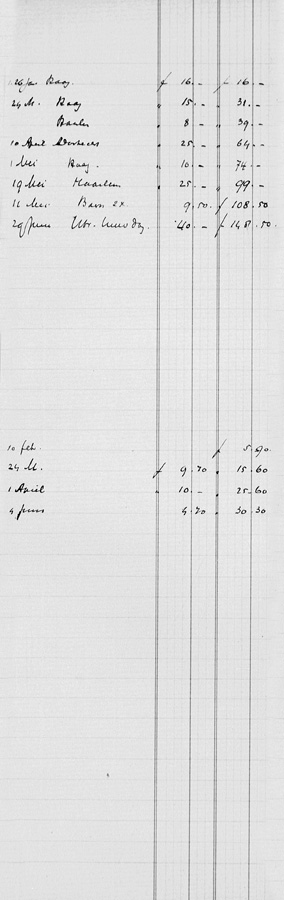 26 Jan Baay. f 16.- f 16.-
24 M. Baay " 15.- " 31.-
" 8.- " 39.-
10 April " 25.- " 64.-
1 Mei Baay. " 10.- " 74.-
19 Mei Haarlem " 25.- " 99.-
Mei Baay 9.50 f 108.50
29 Juni 40.- f 148.50.
10 feb. f 5.90
24 M. f 9.70 " 15.60
1 April " 10.- " 25.60
4 Juni " 4.70 " 30.30